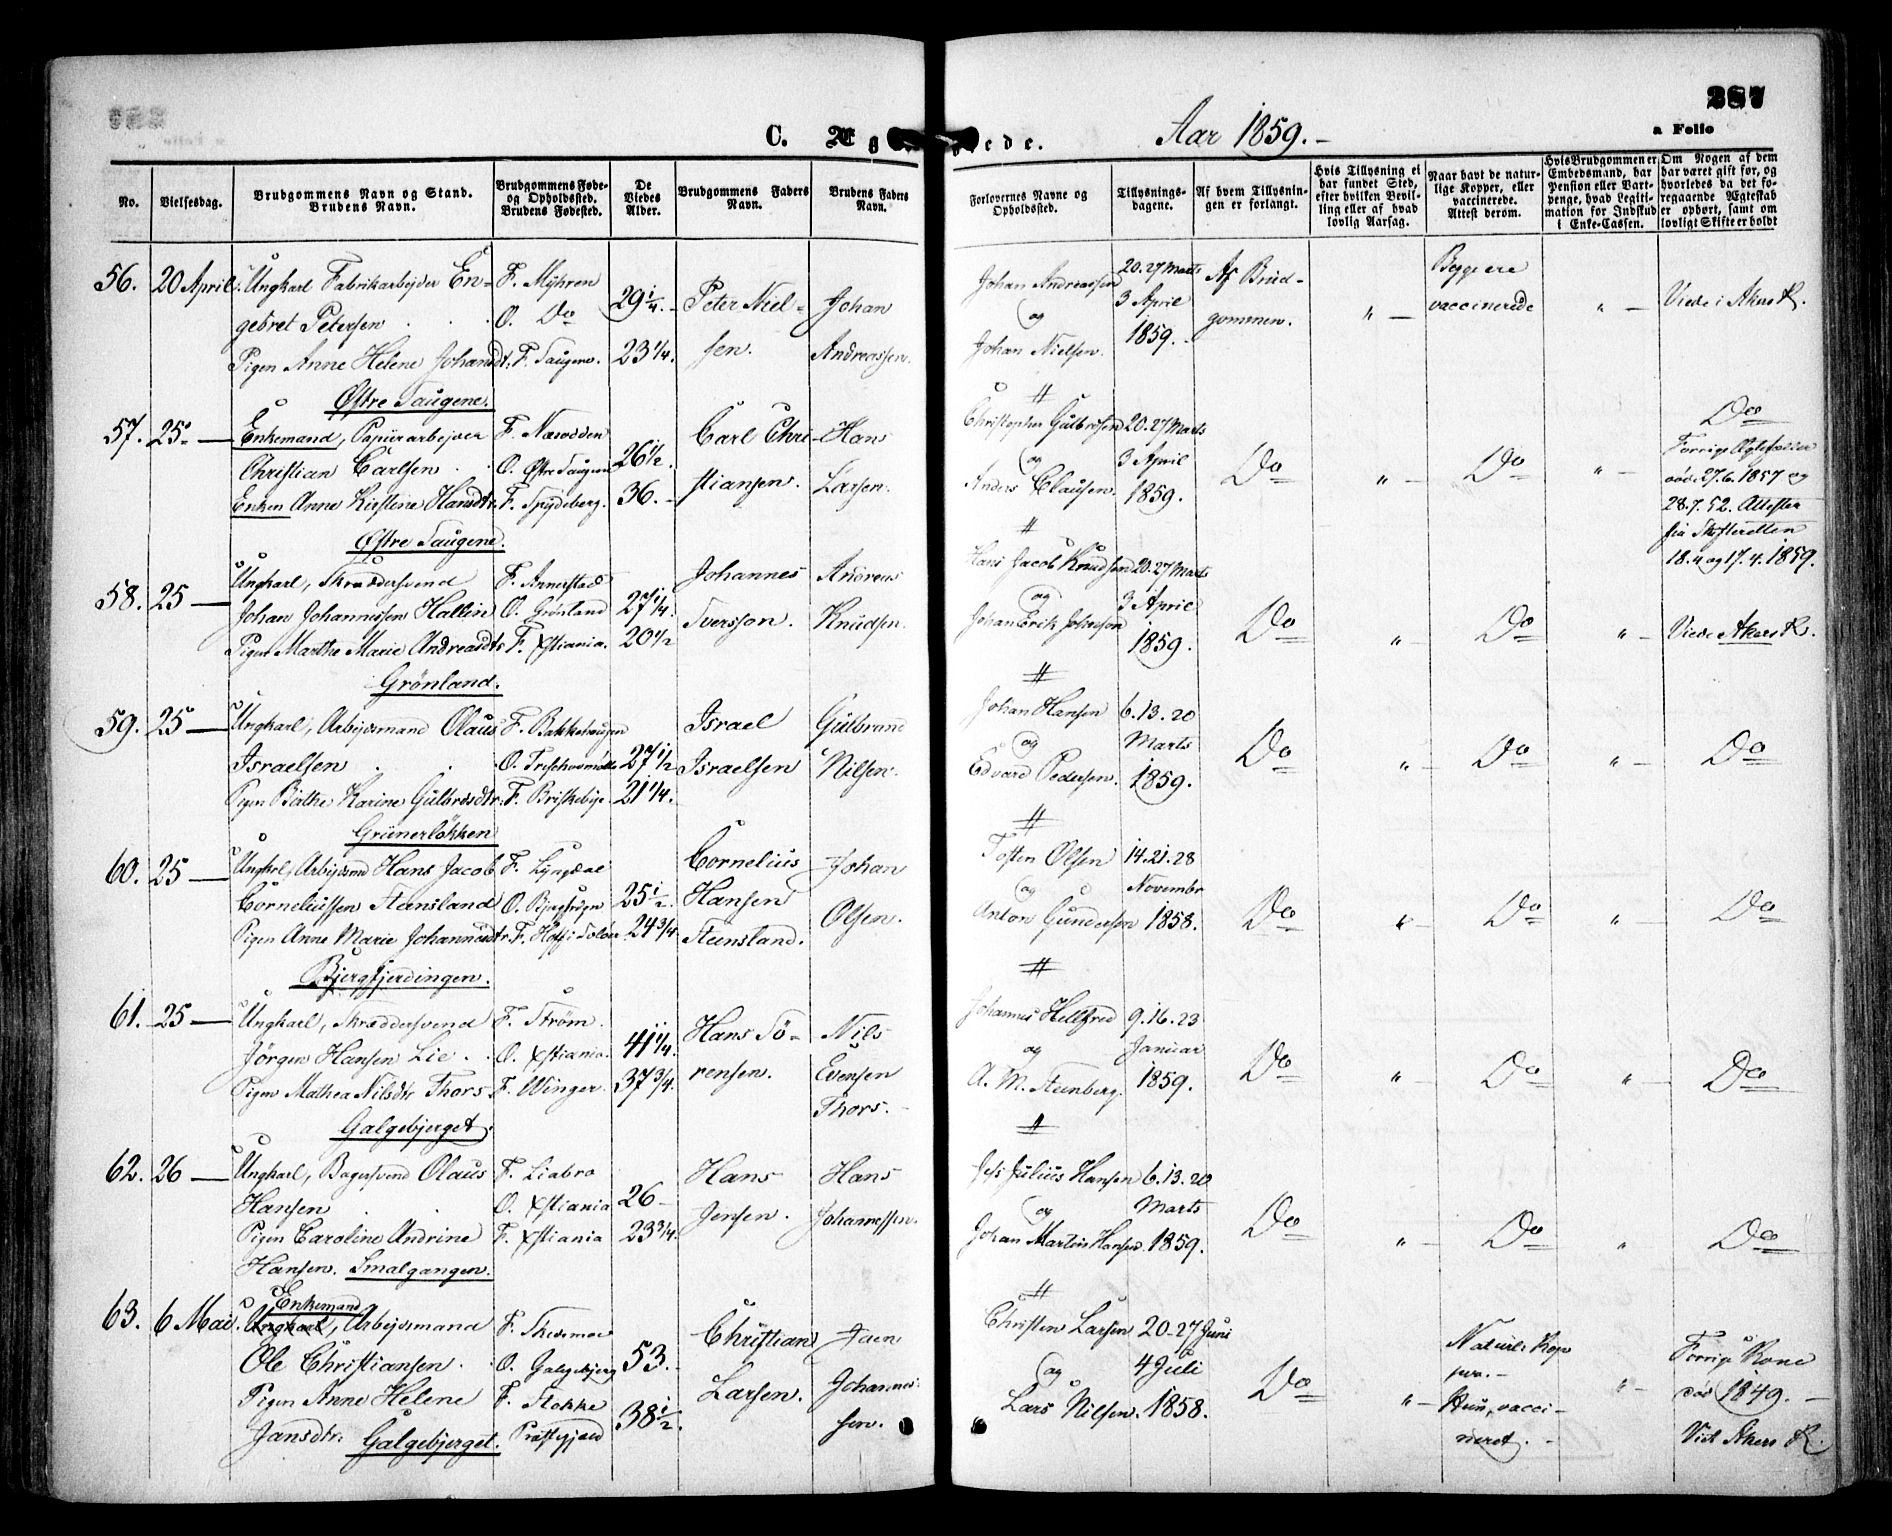 287
C. Ægteviede. Aar 1859.-
a Folio
No.
Vielsesdag.
Brudgommens Navn og Stand.
Brudens Navn.
Brudgommens Føde-
og Opholdssted.
Brudens Fødested.
De
Viedes
Alder.
Brudgommens Faders
Navn.
Brudens Faders
Navn.
Forlovernes Navne og
Opholdssted.
Tillysnings-
dagene.
Af hvem Tillysnin-
gen er forlangt.
Hvis Tillysning ei
har fundet Sted,
efter hvilken Bevil-
ling eller af hvad
lovlig Aarsag.
Naar havt de natur-
lige Kopper, eller
vaccinerede.
Attest derom.
Hvis Brudgommen er
Embedsmand, har
Pension eller Vart-
penge, hvad Legiti-
mation for Indskud
i Enke-Cassen.
Om Nogen af dem
har været gift før, og
hvorledes da det fo-
regaaende Ægteskab
er ophørt, samt om
lovligt Skifte er holdt
56. 20 April. Ungkarl Fabrikarbeider En- F. Myhren 29 1/4. Peter Niel- Johan
gebret Petersen O. Do
Pigen Anne Helene Johansdt. F. Saugene. 23 1/4. sen. Andreassen.
Østre Saugene.
Johan Andreassen 20. 27 Marts Af Brud- Begge ere
og 3 April gommen. " vaccinerede " Viede i Akers K.
Johan Nielsen. 1859.
57. 25 — Enkemand, Papiirarbeider F. Næsodden 26 1/2. Carl Chri- Hans
Christian Carlsen O. Østre Saugene
Enken Anne Kirstine Hansdtr. F. Spydeberg. 36. stiansen. Larsen.
Østre Saugene.
Christopher Gulbrdsen 20. 27 Marts Do
og 3 April Do " Do " Forrige Ægtefæller
Anders Clausen. 1859. døde 27.6.1857 og
28.7.52. Attester
fra Skifteretten
18.4 og 17.4.1859.
58. 25 — Ungkarl, Skræddersvend F. Annerstad 27 1/4. Johannes Andreas
Johan Johannessen Hallin O. Grønland
Pigen Marthe Marie Andreasdtr F. Xstiania. 20 1/2 Sversson. Knudsen.
Grønland.
Hans Jacob Knudsen 20. 27 Marts
og 3 April Do " Do " Viede Akers K.
Johan Erik Johnson 1859.
59. 25 — Ungkarl, Arbeidsmand Olaus F. Bakkehaugen Israel Gulbrand
Israelsen O. Treschowmølle 27 1/2 Israelsen Nilsen.
Pigen Birthe Karine Gulbrdsdtr. F. Briskebye. 21 1/4.
Grünerløkken
Johan Hansen 6. 13. 20
og Marts Do " Do " Do
Edvard Pedersen. 1859.
60. 25 — Ungkrl, Arbeidsmd Hans Jacob F. Lyngdal Cornelius Johan
Corneliussen Steensland O. 25 1/2. Hansen
Pigen Anne Marie Johannesdtr. F. 24 3/4. Steensland. Olsen.
Bjergfjerdingen.
Tosten Olsen 14. 21. 28
og Novembr Do " Do " Do
Anton Gundersen 1858.
61. 25 — Ungkarl, Skræddersvend F. Strøm. Hans Sö- Nils
Jörgen Hansen Lie. O. Xstiania. 41 1/4. rensen. Evensen
Pigen Mathea Nilsdtr Thors. F. Winger. 37 3/4. Thors.
Galgebjerget.
Johannes Hellfred 9. 16. 23
og Januar Do " Do " Do
A. M. Steenberg. 1859.
62. 26 — Ungkarl, Bagersvend Olaus F. Liabro Hans Hans
Hansen O. Xstiania 26 - Jensen. Johannessen.
Pigen Caroline Andrine F. Xstiania 23 3/4.
Hansen. Smalgangen.
Julius Hansen 6. 13. 20
og Marts Do " Do " Do
Johan Martin Hansen. 1859.
Enkemand
63. 6 Mai. Ungkarl, Arbeidsmand F. Skedsmoe Christian Jaen
Ole Christiansen O. Galgebjerg 53. Larsen. Johannes-
Pigen Anne Helene F. Stokke sen.
Jansdtr. Galgebjerget. Præstegjeld 38 1/2.
Christen Larsen 20-27 Juni Naturl. Kop- Forrige Kone
og 4 Juli Do " per. - " død 1849.
Lars Nilsen. 1858. Hun, vacci- Viet Akers K.
neret. -